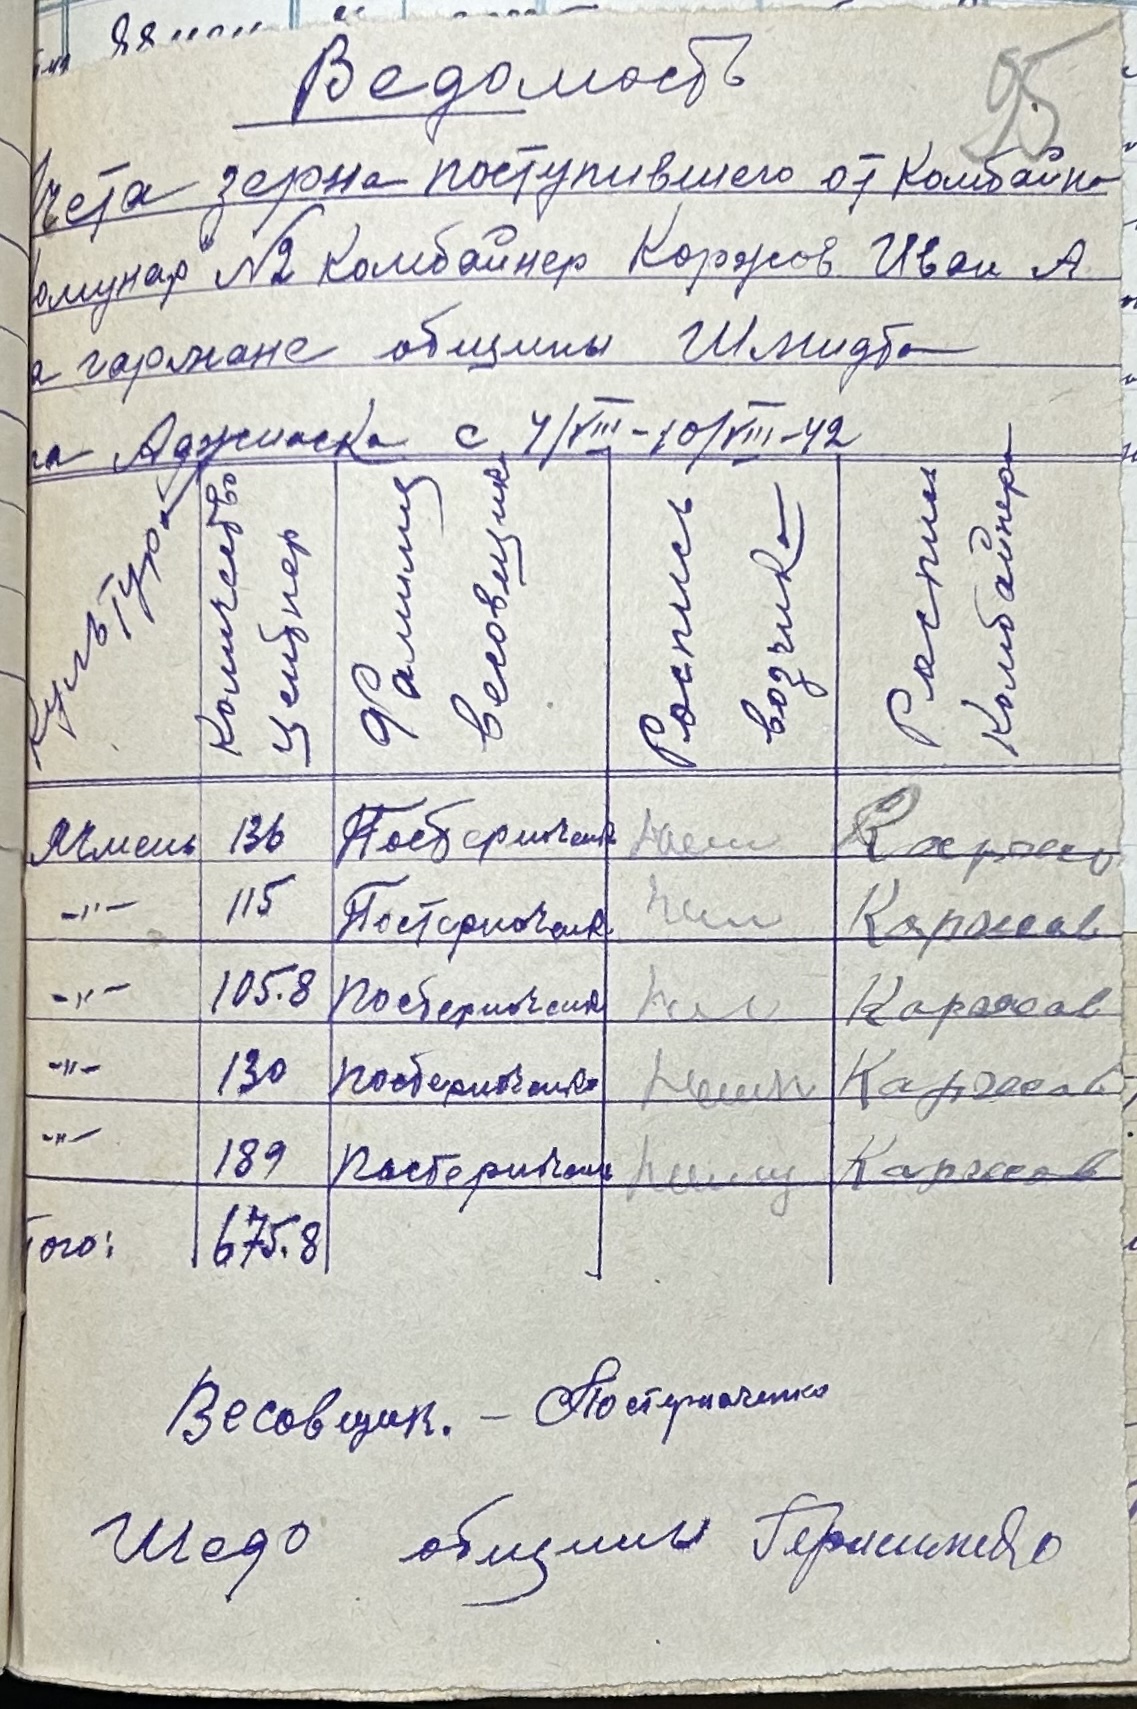 95
Ведомость
учета зерна поступившего от Комбайна
Комунар" №2 Комбайнер Коржов Иван А
на гармане общины Шмидта
Аджиаска с 4/VIII-10/VIII-42
Культура Количество центнер Фамилия весовщика Роспись возчика Роспись Комбайнера
Ячмень 136 Постерначенк Коржов
-"- 115 Постерначенк Каржов
-"- 105.8 Постерначенк Каржов
-"- 130 Постерначенко Каржов
-"- 189 Постерначенк Каржов
Того: 675.8
Весовщик. - Постерначенко
Шедо общины